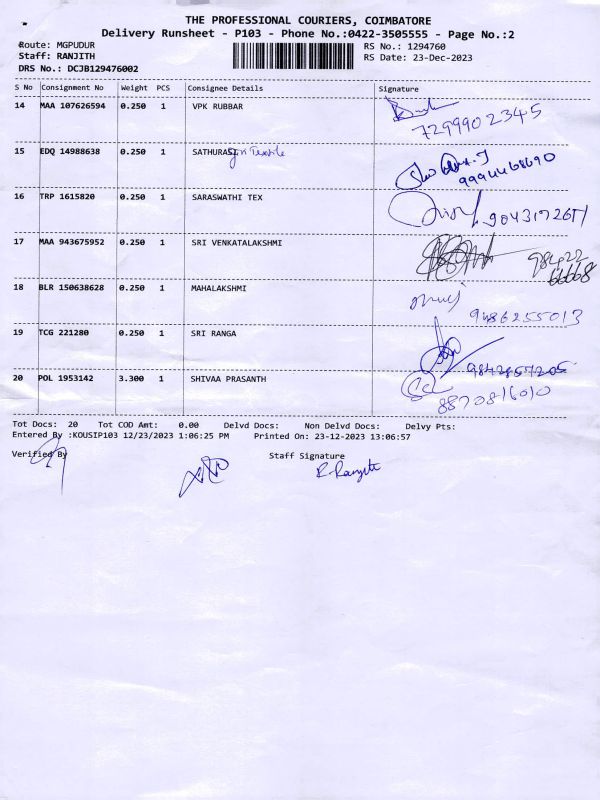 THE PROFESSIONAL COURIERS, COIMBATORE
Delivery Runsheet - P103 - Phone No.:0422-3505555 - Page No.:2
Route: MGPUDUR RS No.: 1294760
Staff: RANJITH RS Date: 23-Dec-2023
DRS No.: DCJB129476002
S No Consignment No Weight PCS Consignee Details Signature
14 MAA 107626594 0.250 1 VPK RUBBAR
7299902345
15 EDQ 14988638 0.250 1 SATHURAS Sri Textile
9994468690
16 TRP 1615820 0.250 1 SARASWATHI TEX
17 MAA 943675952 0.250 1 SRI VENKATALAKSHMI
98422
66668
18 BLR 150638628 0.250 1 MAHALAKSHMI
9486255013
19 TCG 221280 0.250 1 SRI RANGA
9842857205
20 POL 1953142 3.300 1 SHIVAA PRASANTH
8870816010
Tot Docs: 20 Tot COD Amt: 0.00 Delvd Docs: Non Delvd Docs: Delvy Pts:
Entered By :KOUSIP103 12/23/2023 1:06:25 PM Printed On: 23-12-2023 13:06:57
Verified By Staff Signature
R. Ranjith